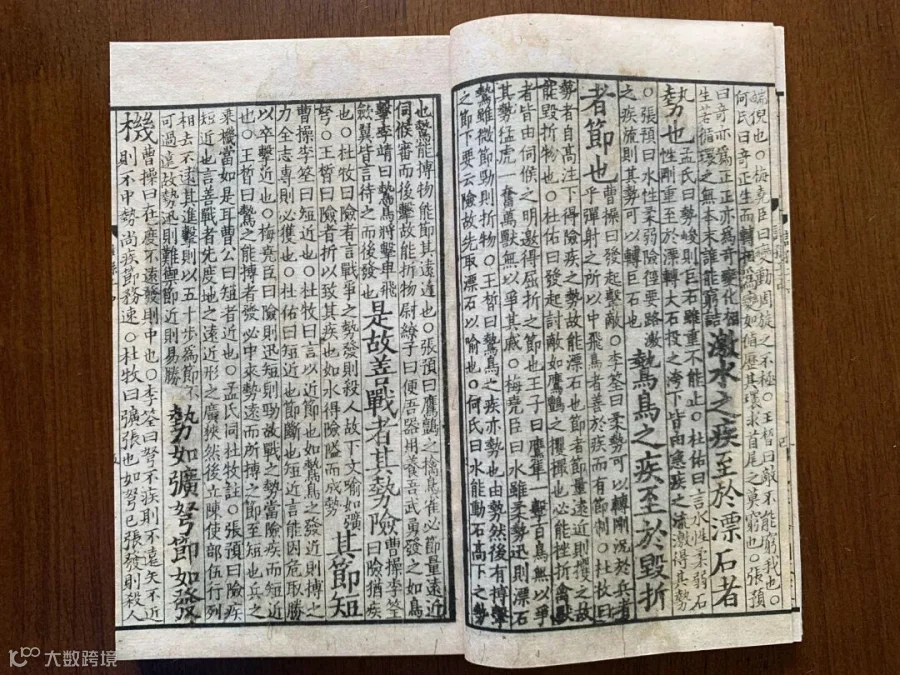 倪也○梅堯臣曰變動周旋之不極○王晳曰敵不能窮我也○
何氏曰奇正生而轉相爲變如循歷其環求首尾之莫窮也○張預
曰奇亦爲正正亦爲奇變化相
生若循環之無本末誰能窮詰
激水之疾至於漂石者
勢也
孟氏曰勢峻則巨石雖重不能止○杜佑曰言水性柔弱石
性剛重至於漂轉大石投之洿下皆由急疾之流激得其勢
○張預曰水性柔弱險徑要路激
之疾流則其勢可以轉巨石也
鷙鳥之疾至於毀折
者節也
曹操曰發起擊敵○李筌曰柔勢可以轉剛況於兵者
乎彈射之所以中飛鳥者善於疾而有節制○杜牧曰
勢者自高注下得險疾之勢故能漂石也節者節量遠近則攫之故
能毀折物也○杜佑曰發起討敵如鷹鸇之攫撮也必能挫折禽獸
者皆由伺候之明邀得屈折之節也王子曰鷹隼一擊百鳥無以爭
其勢猛虎一奮萬獸無以爭其威○梅堯臣曰水雖柔勢迅則漂石
鷙雖微節勁則折物○王晳曰鷙鳥之疾亦勢也由勢然後有搏擊
之節下要云險故先取漂石以喻也○何氏曰水能動石高下之勢
也鷙能搏物能節其遠近也○張預曰鷹鸇之擒鳥雀必節量遠近
伺候審而後擊故能折物尉繚子曰便吾器用養吾武勇發之如鳥
擊李靖曰鷙鳥將擊卑飛
歛翼皆言待之而後發也
是故善戰者其勢險
曹操李筌
曰險猶疾
也○杜牧曰險者言戰爭之勢發則殺人故下文喻如彍
弩○王晳曰險者折以致其疾也如水得險隘而成勢
其節短
曹操李筌曰短近也○杜牧曰言以近節也如鷙鳥之發近則搏之
力全志專則必獲也○杜佑曰短近也節斷也短近言能因危取勝
以卒擊近也○梅堯臣曰險則迅短則勁故戰之勢當險疾而短
近也○王晳曰鷙之能搏者發必中來勢遠而所搏之節至短也兵之
乘機當如是耳曹公曰短近也○孟氏同杜牧註○張預曰險疾
短近也言善戰者先度地之遠近形之廣狹然後立陳使部伍行列
相去不遠其進擊則以五十步爲節不
可過遠故勢迅則難禦節近則易勝
勢如彍弩節如發
機
曹操曰在度不遠發則中也○李筌曰弩不疾則不遠矢不近
則不中勢尚疾節務速○杜牧曰彍張也如弩已張發則殺人
大数跨境